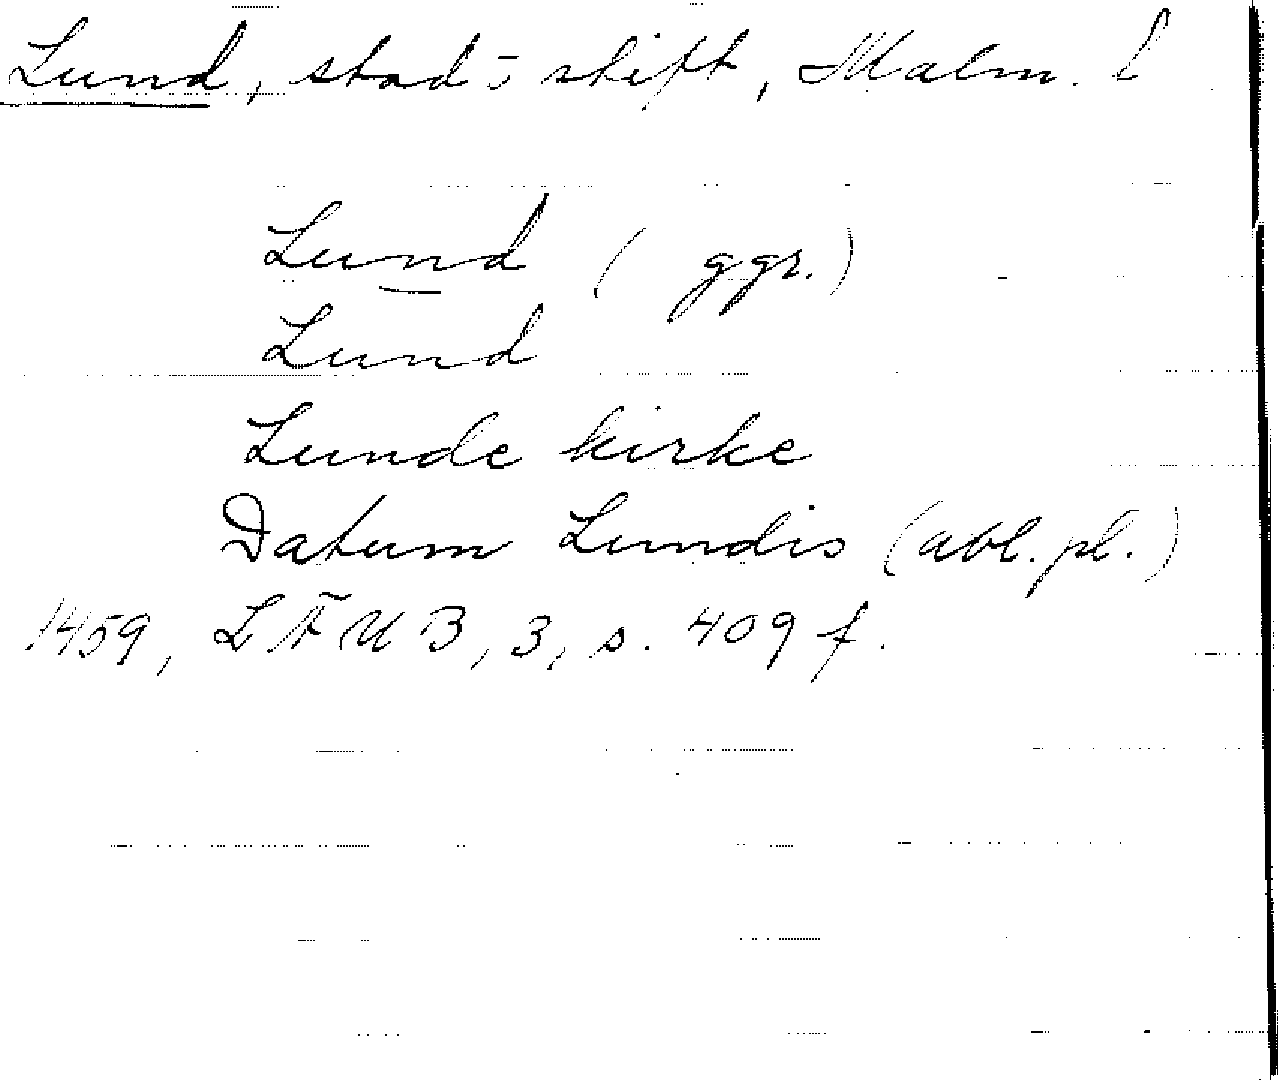 Lund, stad o stift, Malm. l
Lund ( ggr.)
Lund
Lunde kirke
Datum Lundis (abl. pl.)
1459, LÄUB, 3, s. 409 f.